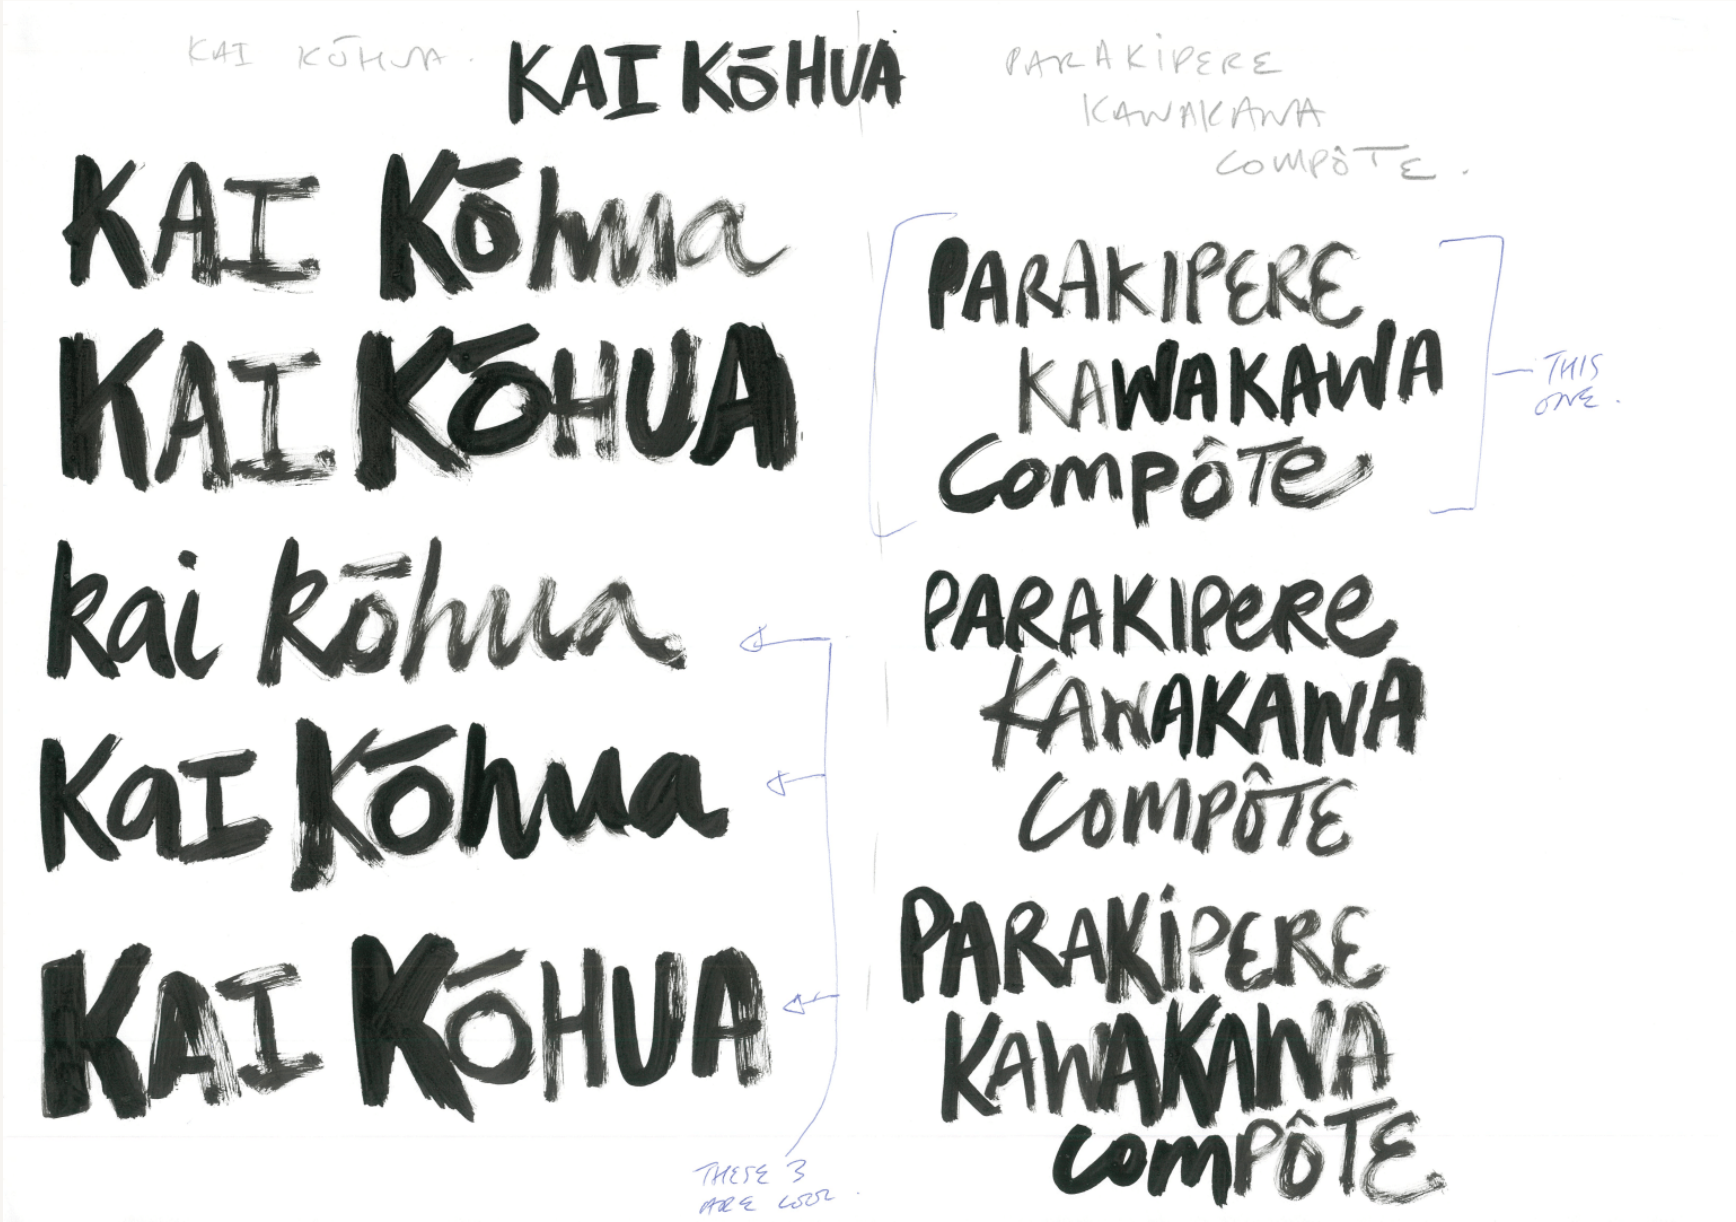 KAI KŌHUA.
KAI KŌHUA
KAI Kōhua
KAI KŌHUA
kai kōhua
KaI Kōhua
KAI KŌHUA
THESE 3
ARE COOL.
PARAKiPERE
KAWAKAWA
COMPÔTE.
PARAKIPERE
KAWAKAWA
COMPÔTe
THIS
ONE.
PARAKIPeRe
KAWAKAWA
COMPÔTE
PARAKiPERE
KAWAKAWA
COMPÔTE.